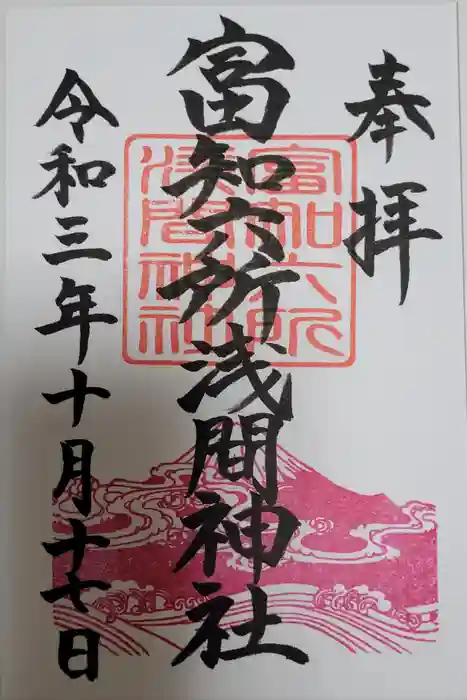 奉拝
富知六所浅間神社
富知六所
浅間神社
令和三年十月十七日